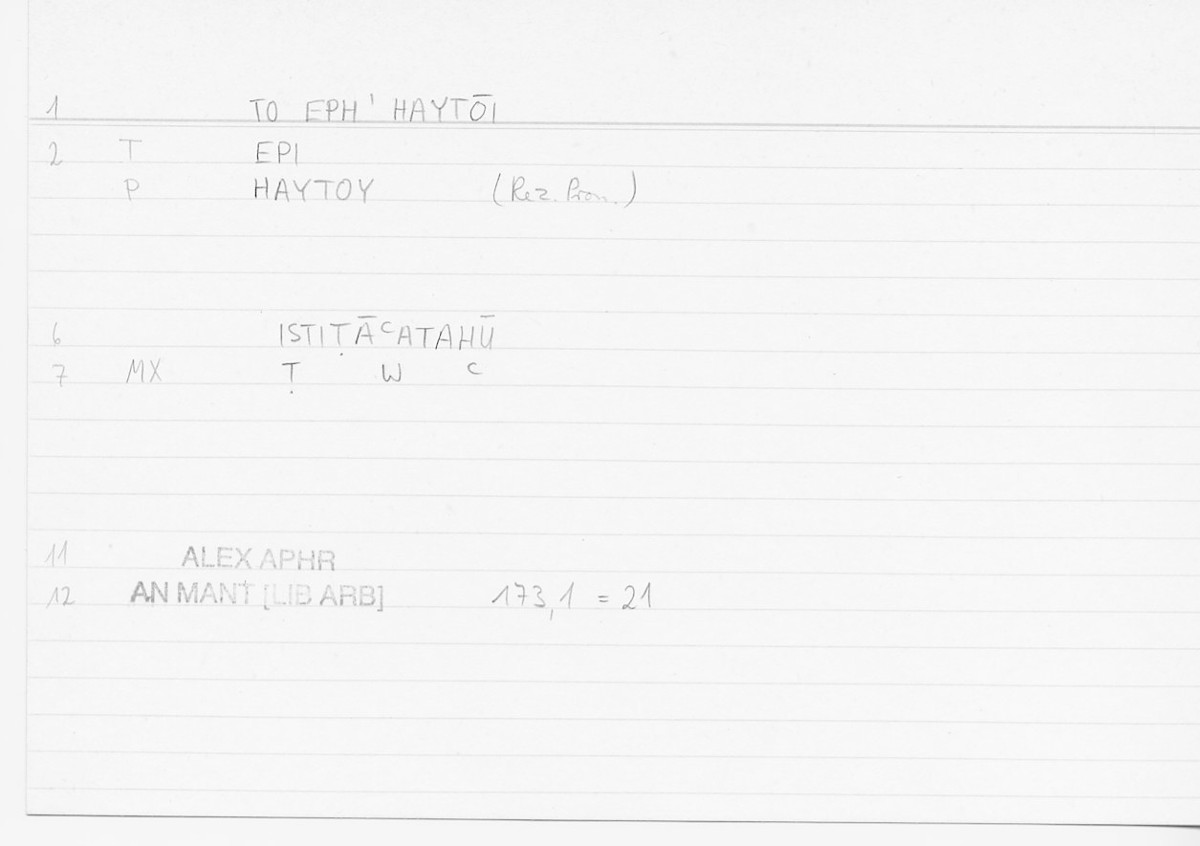 1 TO EPH' HAYTŌI
2 T EPI
P HAYTOY (Rez. Pron.)
6 ISTIṬĀᶜATAHŪ
7 MX Ṭ W ᶜ
11 ALEX APHR
12 AN MANT [LIB ARB] 173,1 = 21